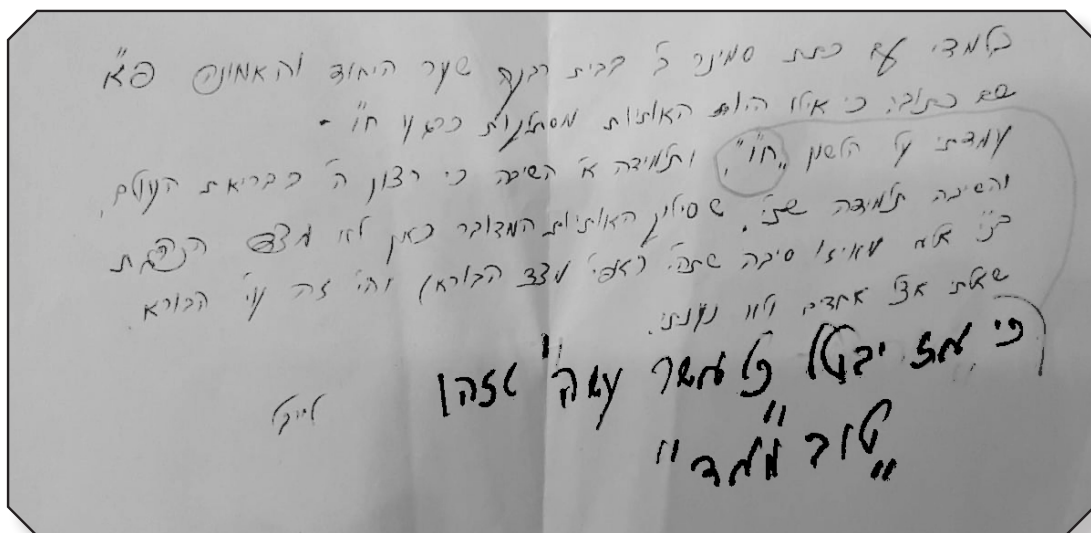 בלמדי עם כתת סמינר ב' בבית רבקה שער היחוד והאמונה פ"א
שם כתוב כי אילו היות האותיות מסתלקות כרגע ח"ו -
עמדתי על הלשון "ח"ו", ותלמידה א' השיבה כי רצון ה' בבריאת העולם,
והשיבה תלמידה שני', שסילוק האותיות המדובר כאן לא מצד הנהגת
בנ"י אלא מאיזו סיבה שתהי' (אפי' מצד הבורא) והי' זה ע"י הבורא.
שאלתי אצל אחדים ולא נענתי.
כי אז יבטל מעשה ה' שזהו
"טוב מאד"